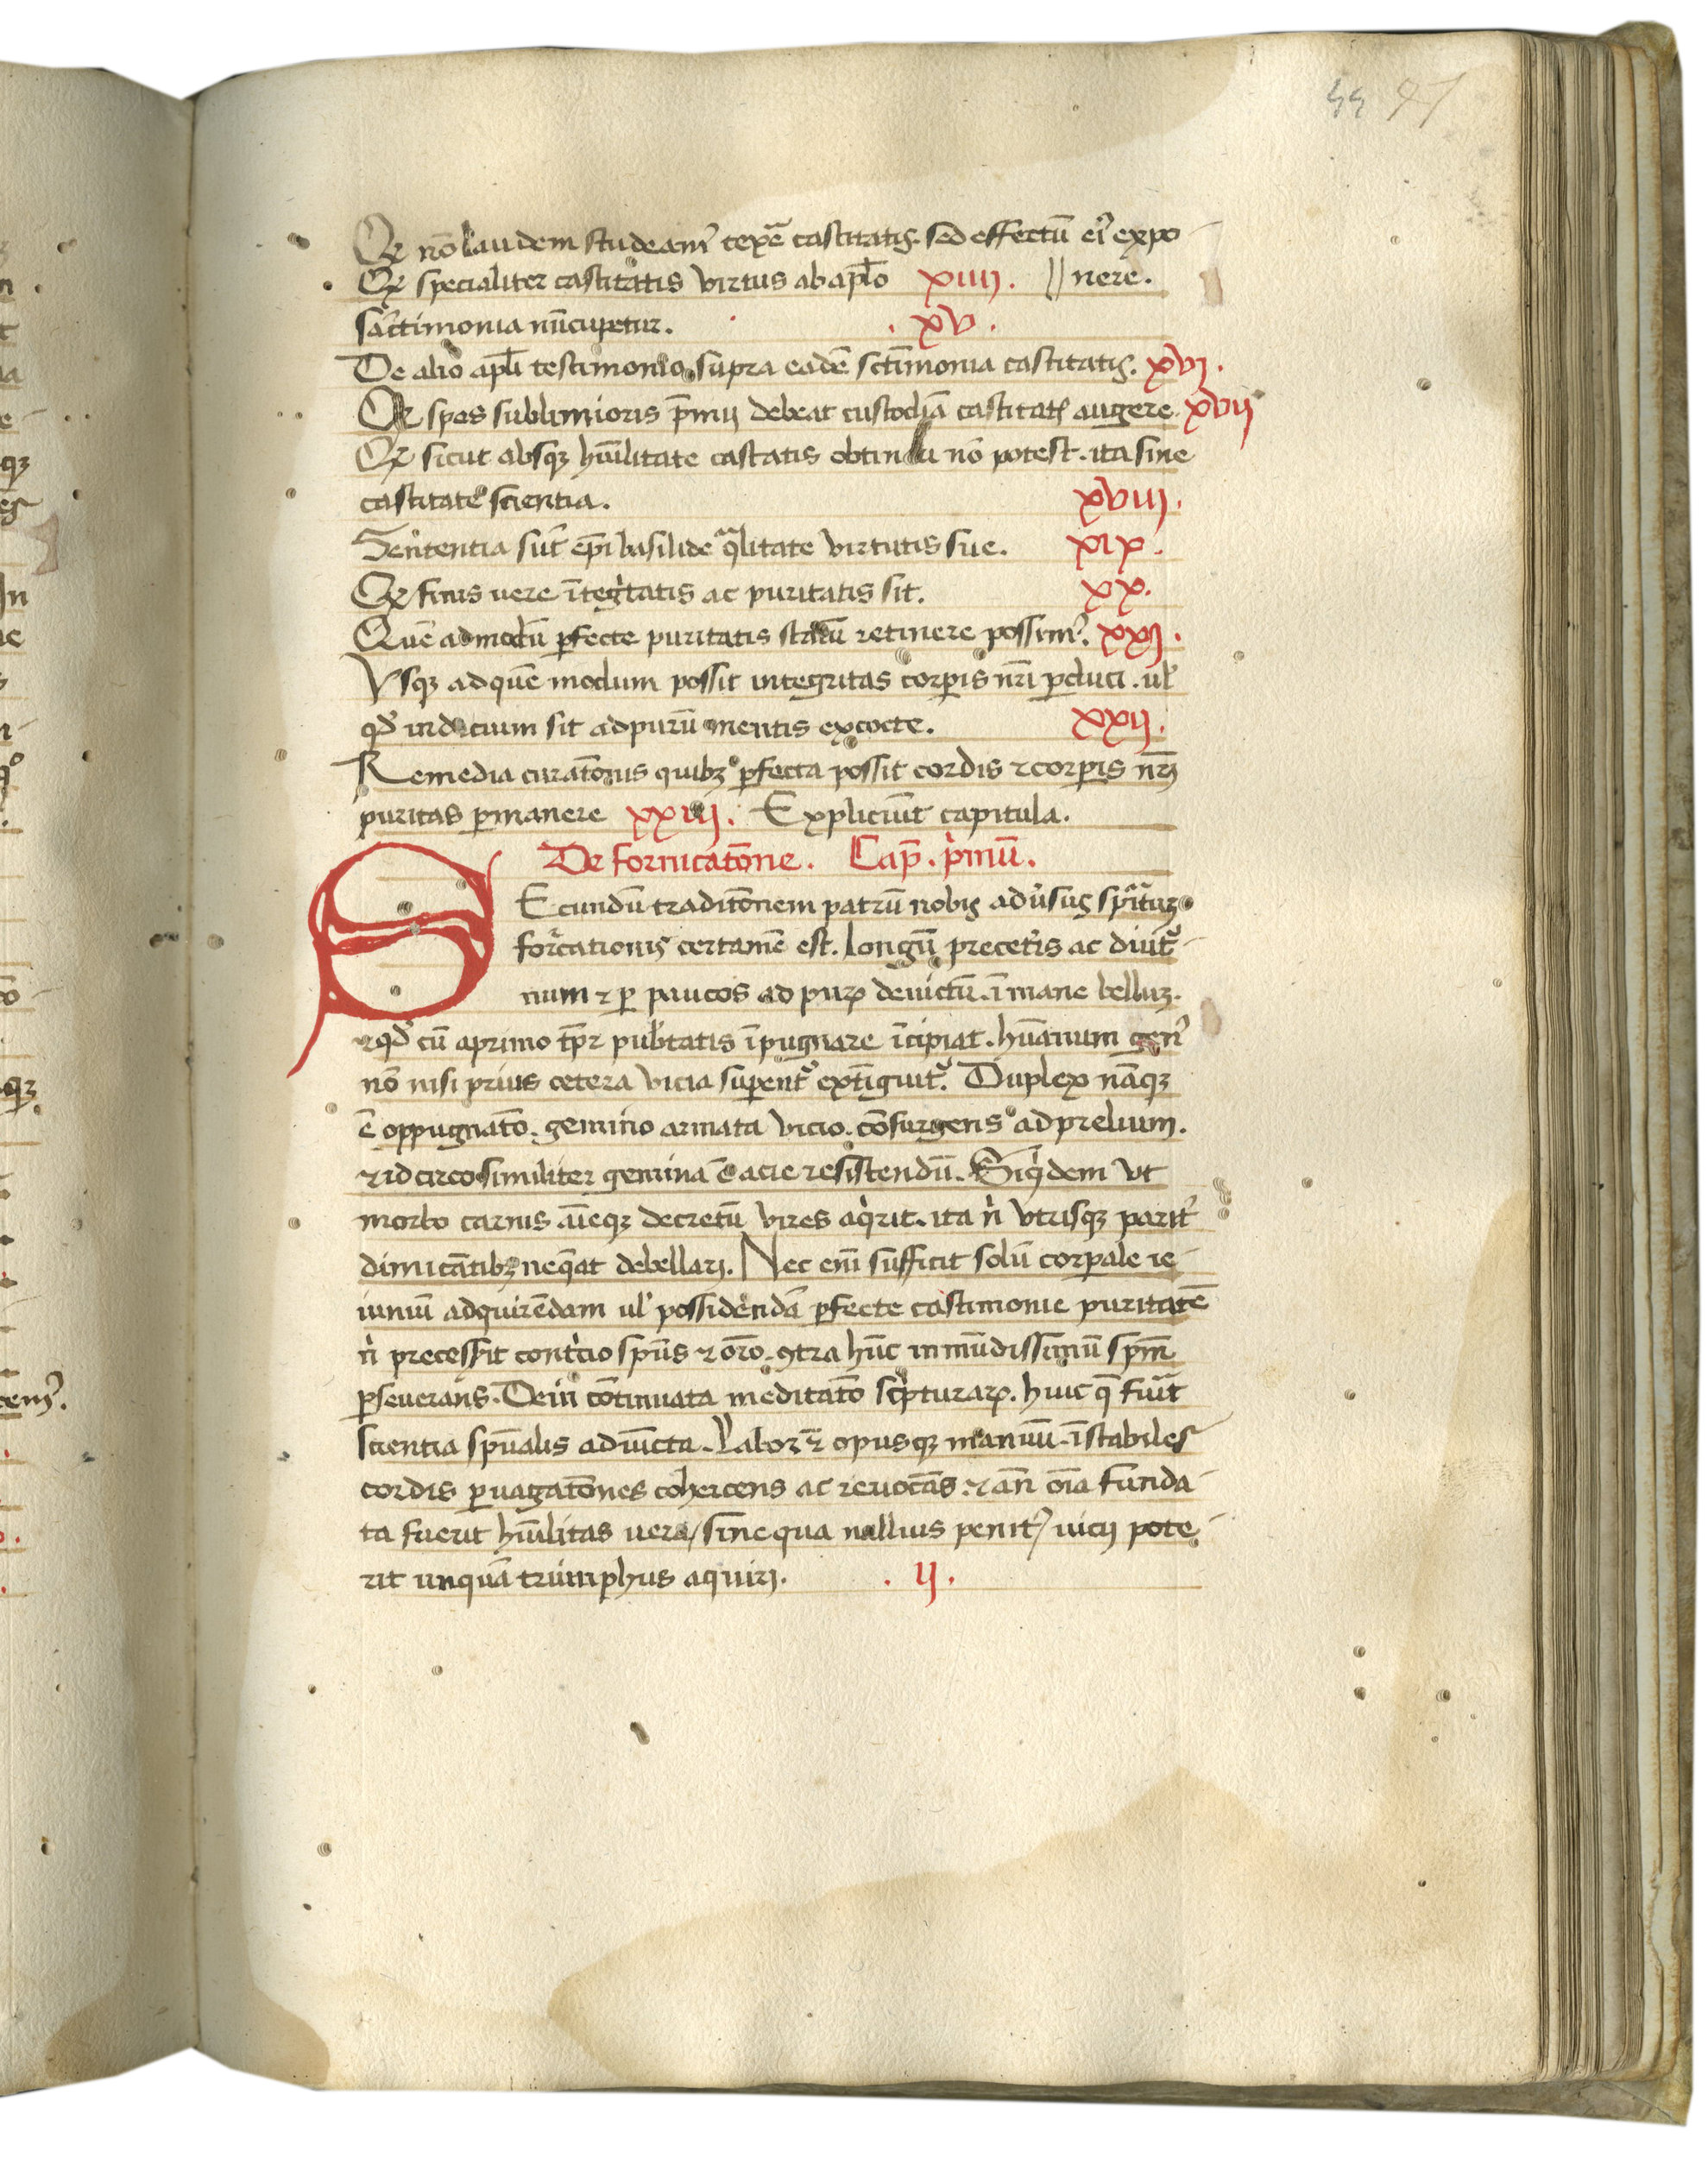 44 97
Qꝫ nō laudem studeamꝰ texē castitatis. sed effectū eiꝰ expo-
Qꝫ specialiter castitatis virtus ab apl̄o xiiij. // nere.
sāctimonia nūcupetur. . xv .
De alio apl̄i testimonio supra eadē sctīmonia castitatis. xvj.
Qꝫ spes sublimioris p̄mij debeat custodiā castitatꝭ augere xvij
Qꝫ sicut absqꝫ hūilitate castatis obtin non potest. ita sine
castitate scientia. xviij.
Sententia sūt ep̄i basilide qͣlitate virtutis sue. xix.
Qꝫ finis uere ītegͥtatis ac puritatis sit. xx.
Quē admodū ꝑfecte puritatis statū retinere possimꝰ. xxj.
Vsqꝫ ad quē modum possit integritas corꝑis nr̄i ꝑduci. ul̓
qd̓ indicium sit ad purū mentis excocte. xxij.
Remedia curatōnis quibꝫ ꝑfecta possit cordis ⁊ corꝑis nrī
puritas ꝑmanere xxiij. Expliciūt capitula.
De fornicatōne. Cap̄. pͥmū.
SEcundū traditōnem patrū nobis adu̓sus spiritūꝫ
forͣcationis certamē est. Longū precet̓is ac diut̾-
num ⁊ ꝑ paucos ad puꝝ deuictū. īmane belluꝫ.
⁊ qd̓ cū a primo tꝑe pub̓tatis īpugnare īcipiat. hūanum genꝰ
nō nisi prius cetera vicia suꝑent̾ extīguit̾. Duplex nāqꝫ
ē oppugnatō. gemino armata vicio. cōsurgens ad prelium.
⁊ idcirco similiter gemina ē acie resistendū. Siqͥdem vt
morbo carnis aīeqꝫ decretū vires aqͥrit. ita nͥ vtrisqꝫ parit̓
dimicātibꝫ neq̄at debellari. Nec enī sufficit solū corꝑale ie-
iuniū adquirēdam ul̓ possidēdā ꝑfecte castimonie puritatē
nͥ precesserit contͥcio spūs ⁊ orō. ꝯtra hūc inmūdissimū spm̄
ꝑseuerans. Dein cōtinuata meditatō scͥpturaꝝ. huic q̄ fuīt
scientia spūalis adiūcta. Labor ⁊ opusqꝫ manuū. īstabiles
cordis ꝑuagatōnes cohercens ac reuocās. ⁊ an̄ oīa funda-
ta fuerit hūilitas uera / sine qua nullius penitꝰ uicij pote-
rit unquā triumphus aquiri. . ij .